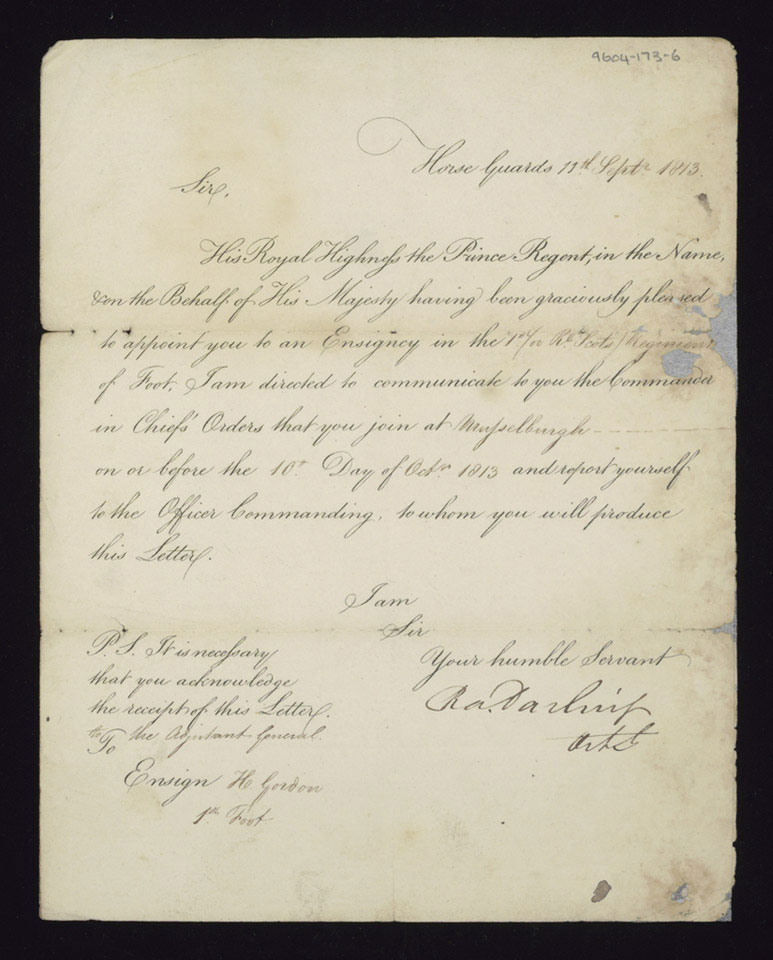 9604-173-6
Horse Guards 11th Septr 1813.
Sir,
His Royal Highness the Prince Regent, in the Name,
& on the Behalf of His Majesty having been graciously pleased
to appoint you to an Ensigncy in the 1st /or Rl Scots/ Regiment
of Foot, I am directed to communicate to you the Commander
in Chief's Orders that you join at Musselburgh
on or before the 10th Day of Octr 1813 and report yourself
to the Officer Commanding, to whom you will produce
this Letter.
I am
Sir
Your humble Servant
Ra. Darling
P.S. It is necessary
that you acknowledge
the receipt of this Letter.
to the Adjutant General.
To
Ensign H. Gordon
1st Foot